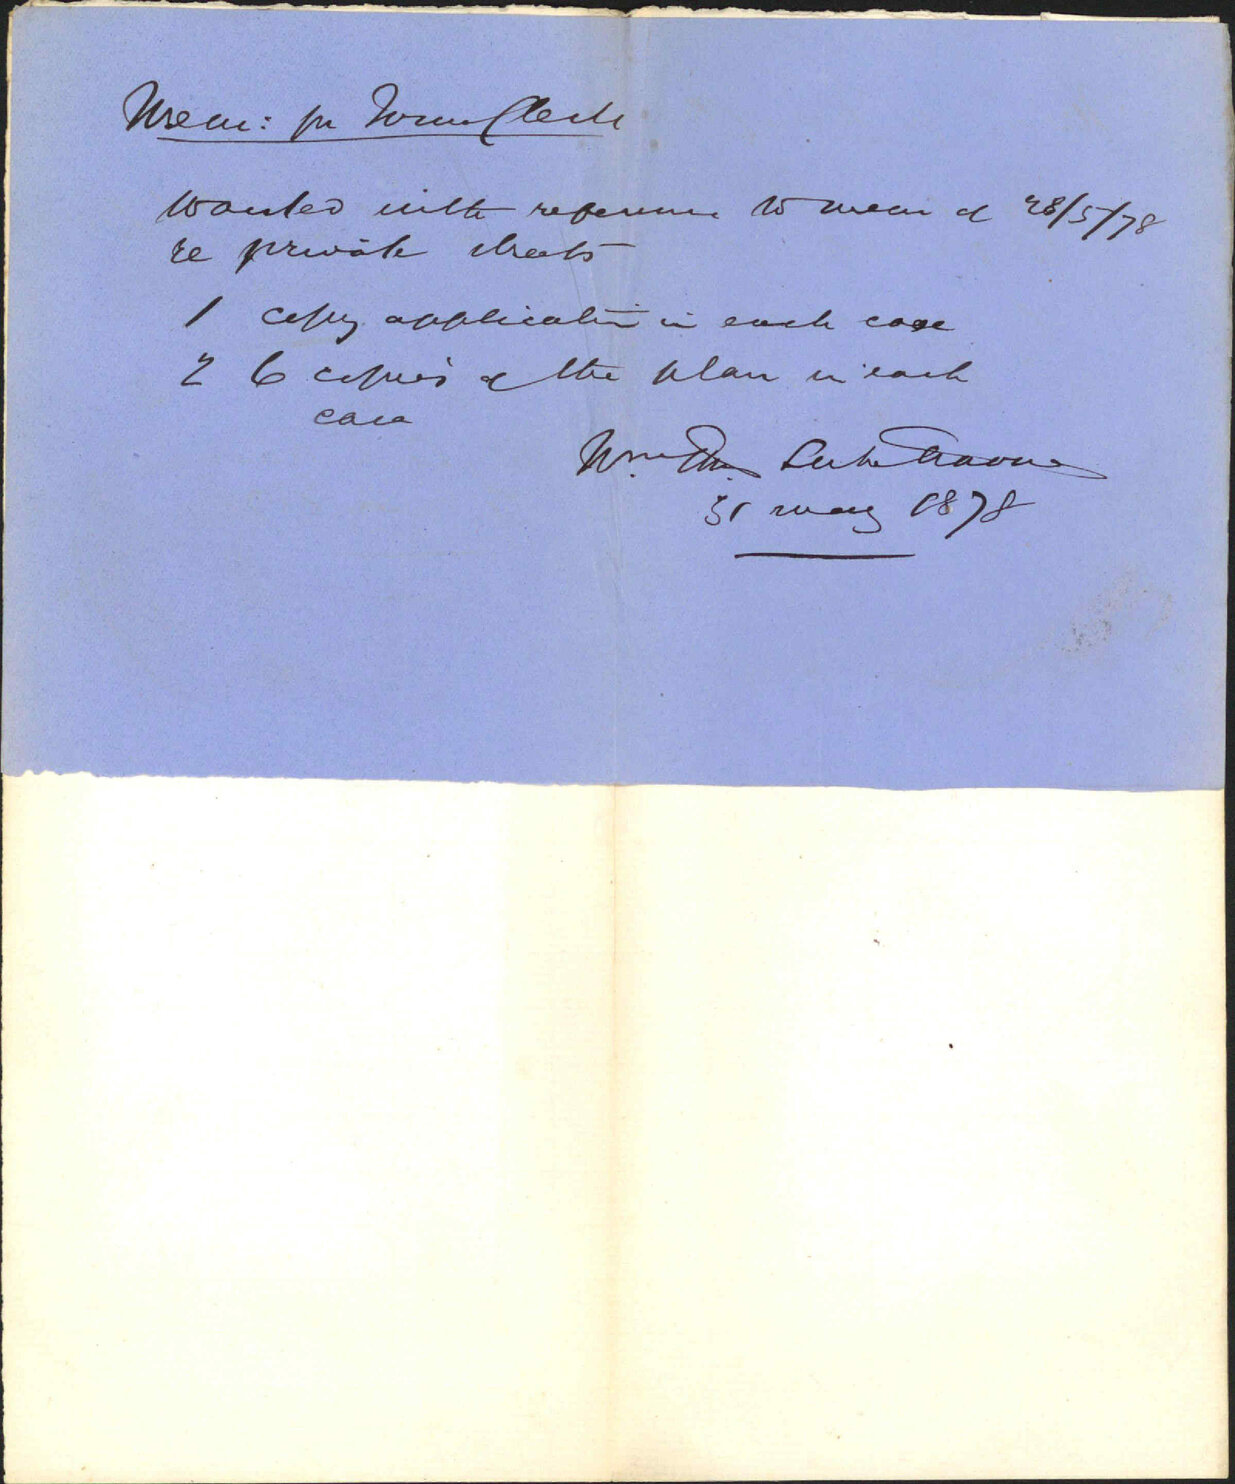 Mem: for Town Clerk
Wanted with reference to mem of 28/5/78
re private streets
1 copy application in each case
2 6 copies of the plan in each
case
Wm
31 May 1878